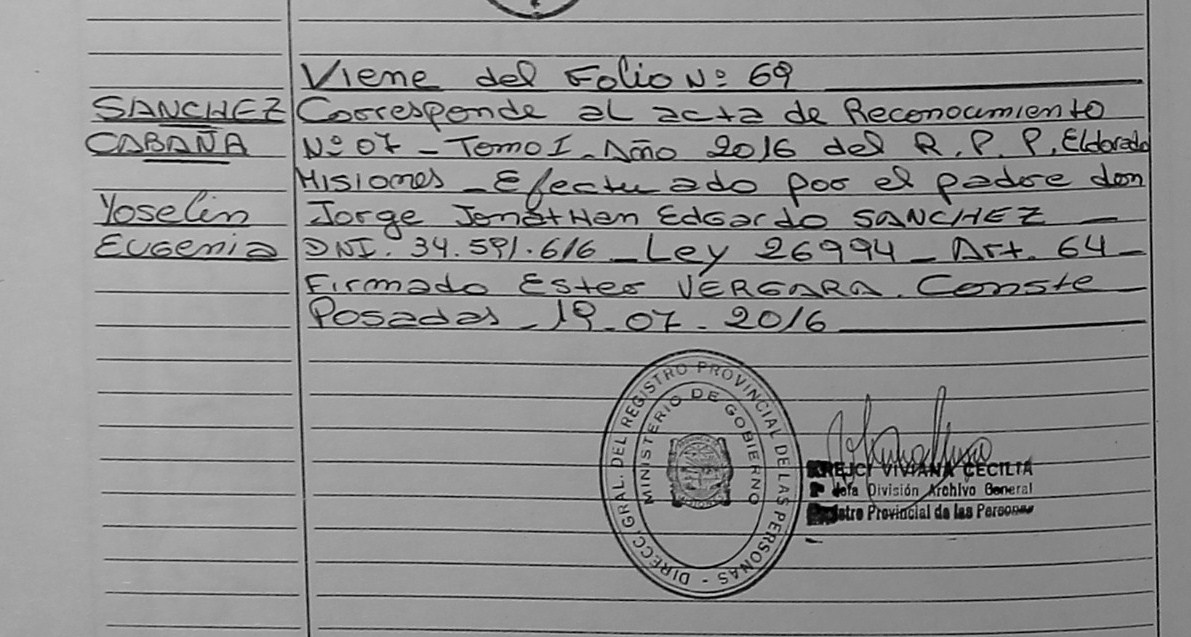 Viene del Folio Nº 69
SANCHEZ Corresponde al acta de Reconocimiento
CABAÑA Nº 07 - Tomo I - Año 2016 del R.P.P. Eldorado
Misiones - Efectuado por el padre don
Yoselin Jorge Jonathan Edgardo SANCHEZ -
Eugenia DNI. 34.591.616 - Ley 26994 - Art. 64 -
Firmado Ester VERGARA. Conste
Posadas - 19 - 07 - 2016
DIRECC. GRAL. DEL REGISTRO PROVINCIAL DE LAS PERSONAS -
MINISTERIO DE GOBIERNO
KREJCI VIVIANA CECILIA
Jefa División Archivo General
Registro Provincial de las Personas